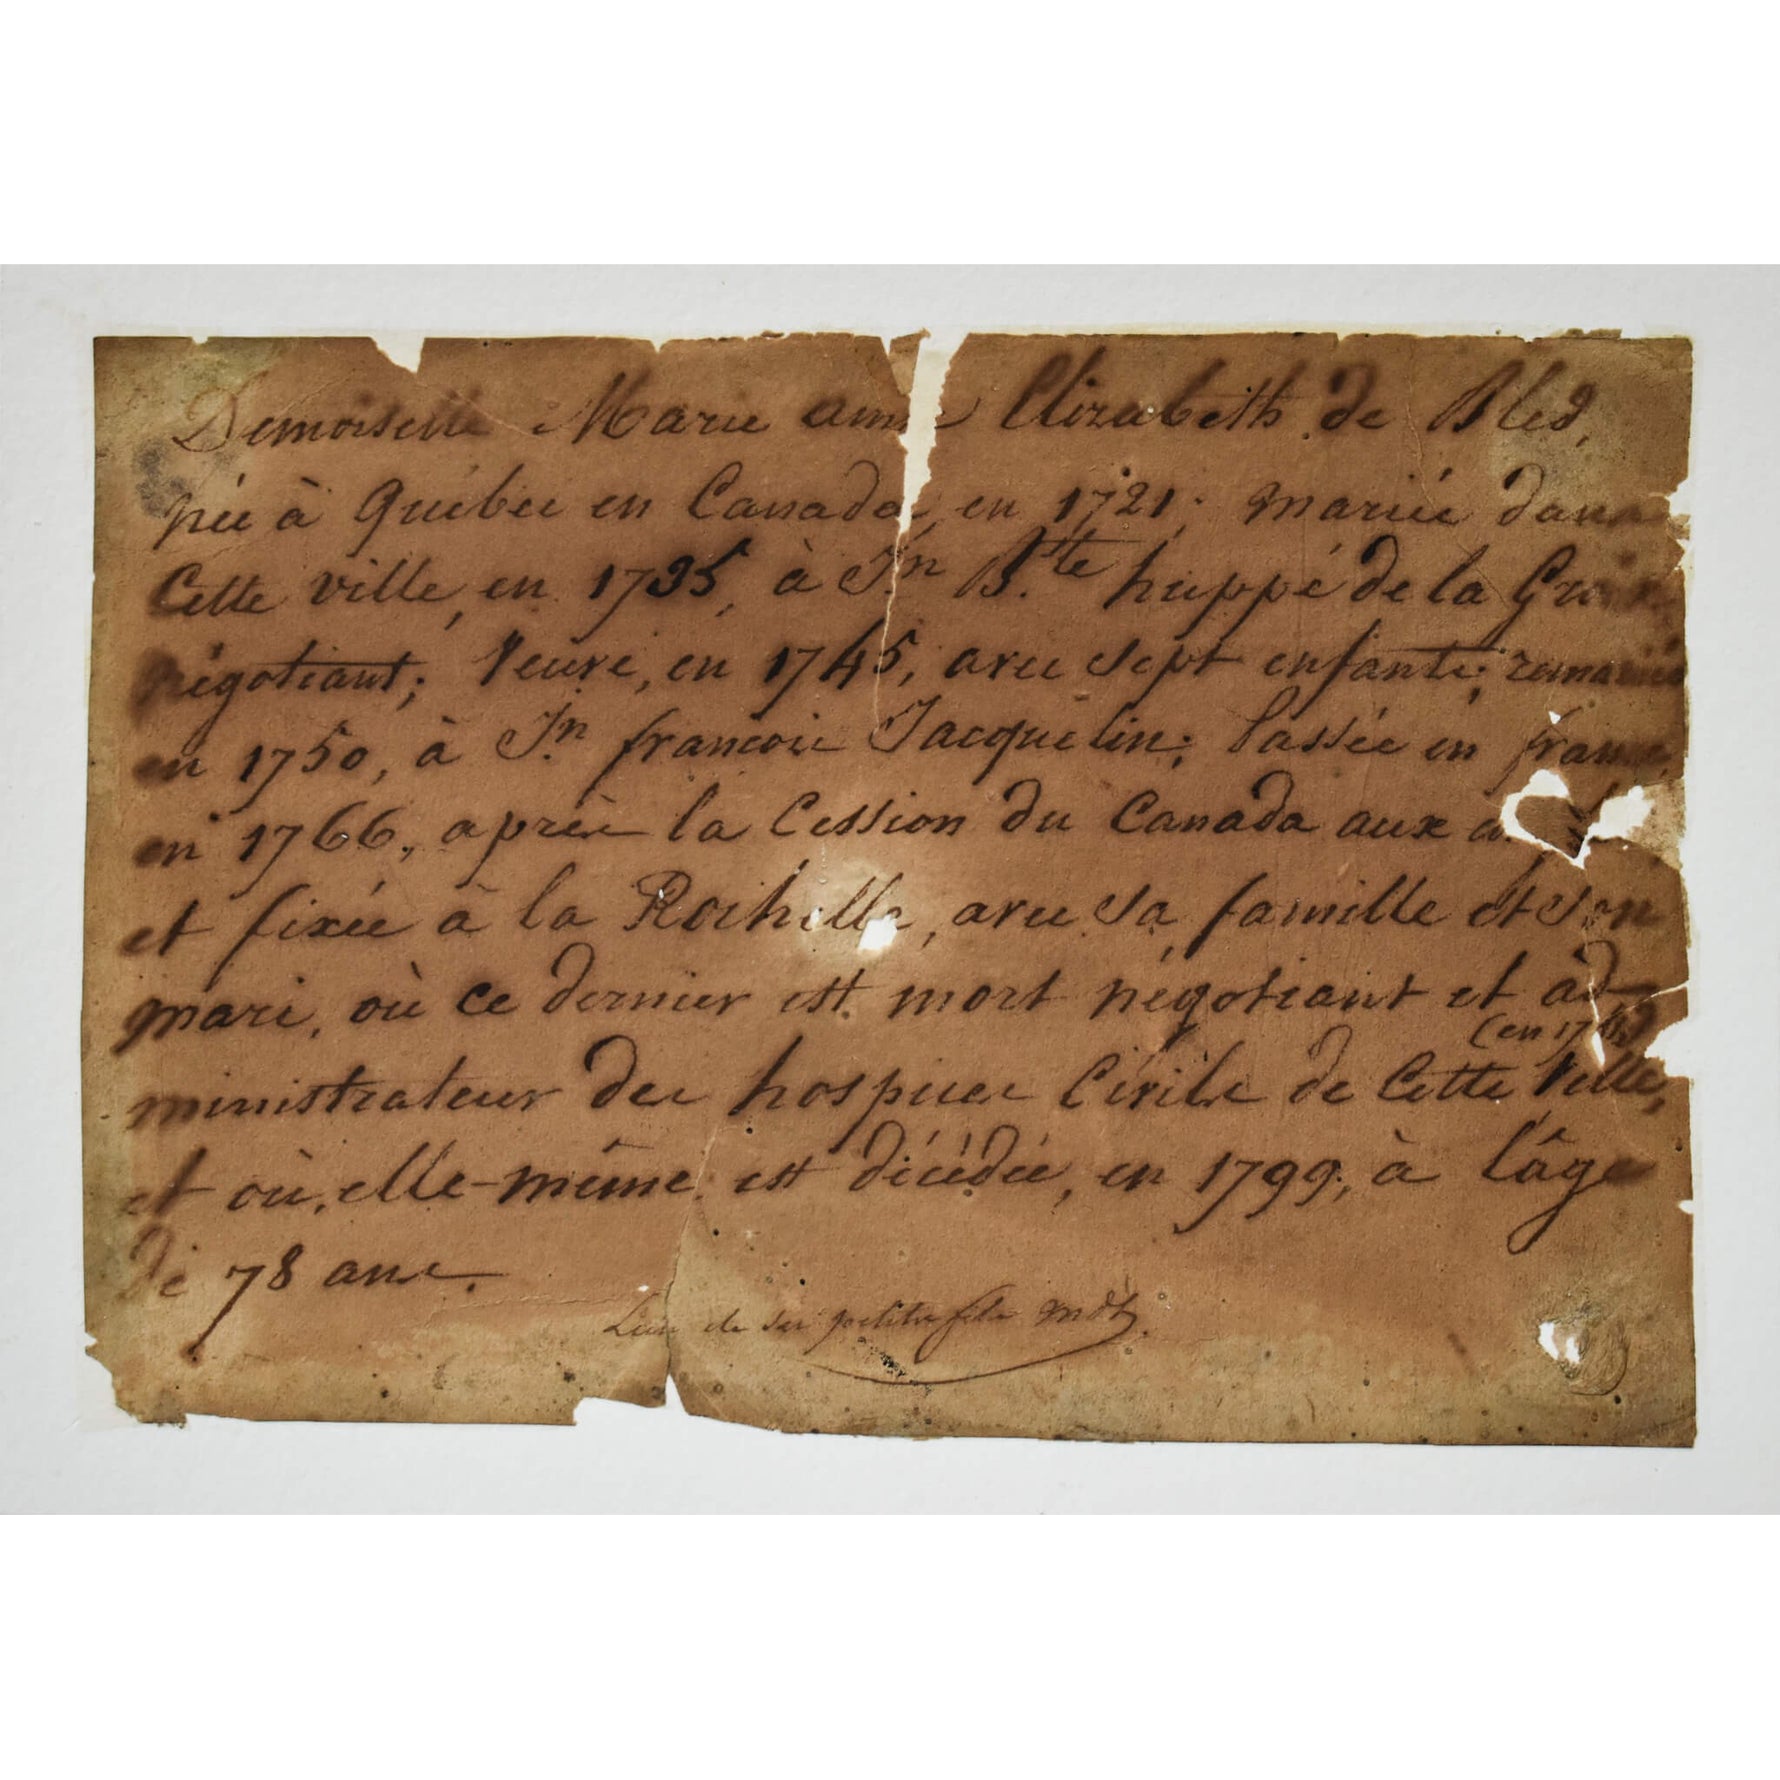 Demoiselle Marie anne Elizabeth de Bled,
née à Québec en Canada, en 1721; mariée dans
Cette ville, en 1735, à Jn. Bte. huppé de la Groix
négotiant; Veuve, en 1745, avec sept enfants; remariée
en 1750, à Jn. francois Jacquelin; Passée en france
en 1766, après la Cession du Canada aux
et fixée à la Rochelle, avec sa famille et son
mari, où ce dernier est mort négotiant et ad-
(en 17
ministrateur des hospices Civils de Cette Ville,
et où, elle-même est décédée, en 1799, à l'âge
de 78 ans.
de ses petits fils